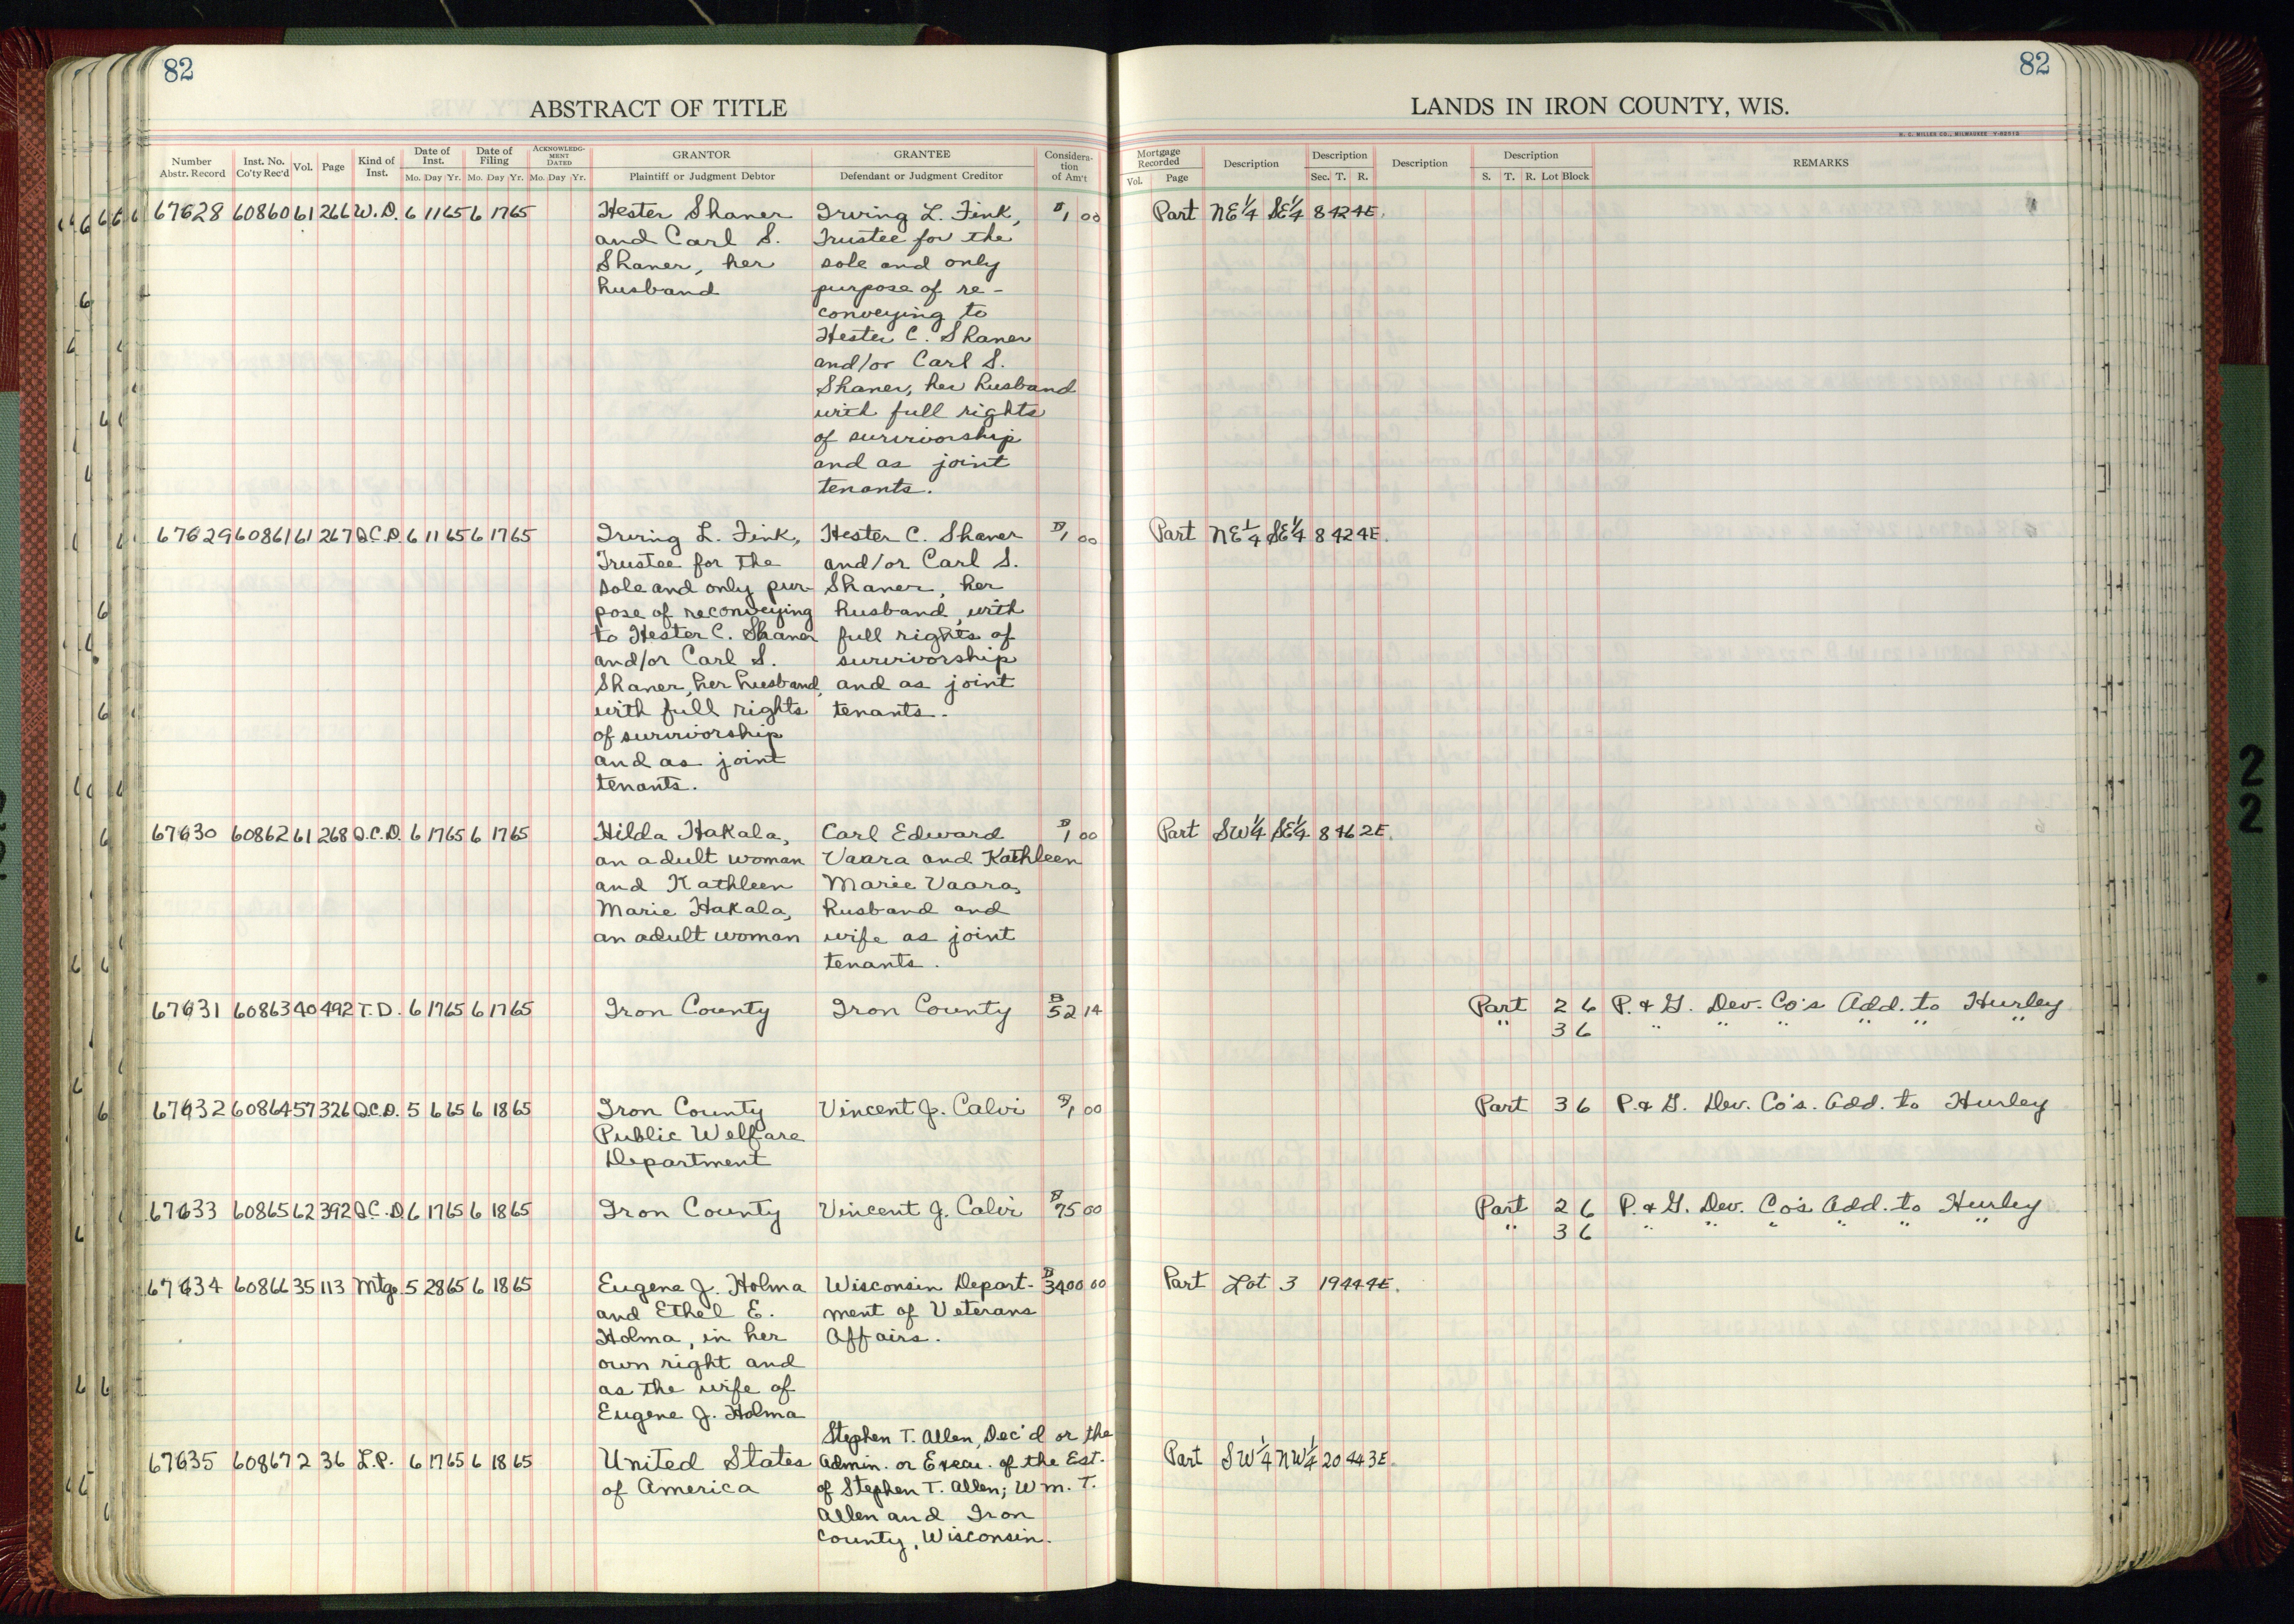 82
82
ABSTRACT OF TITLE
LANDS IN IRON COUNTY, WIS.
H. C. MILLER CO., MILWAUKEE
Number Abstr. Record | Inst. No. Co'ty Rec'd | Vol. | Page | Kind of Inst. | Date of Inst. Mo. Day Yr. | Date of Filing Mo. Day Yr. | ACKNOWLEDG-MENT DATED Mo. Day Yr. | GRANTOR Plaintiff or Judgment Debtor | GRANTEE Defendant or Judgment Creditor | Considera-tion of Am't | Mortgage Recorded Vol. Page | Description | Description Sec. T. R. | Description | Description S. T. R. Lot Block | REMARKS
67628 60860 61 266 W.D. 6 11 65 6 17 65 Hester Shaner Irving L. Fink, $1 00 Part NE1/4 SE1/4 8 42 4E.
and Carl S. Trustee for the
Shaner, her sole and only
husband purpose of re-
conveying to
Hester C. Shaner
and/or Carl S.
Shaner, her husband
with full rights
of survivorship
and as joint
tenants.
67629 60861 61 267 Q.C.D. 6 11 65 6 17 65 Irving L. Fink, Hester C. Shaner $1 00 Part NE1/4 SE1/4 8 42 4E.
Trustee for the and/or Carl S.
sole and only pur- Shaner, her
pose of reconveying husband, with
to Hester C. Shaner full rights of
and/or Carl S. survivorship
Shaner, her husband, and as joint
with full rights tenants.
of survivorship
and as joint
tenants.
67630 60862 61 268 Q.C.D. 6 17 65 6 17 65 Hilda Hakala, Carl Edward $1 00 Part SW1/4 SE1/4 8 46 2E.
an adult woman Vaara and Kathleen
and Kathleen Marie Vaara,
Marie Hakala, husband and
an adult woman wife as joint
tenants.
67631 60863 40 492 T.D. 6 17 65 6 17 65 Iron County Iron County $52 14 Part 2 6 P. & G. Dev. Co's Add. to Hurley
" 3 6 " " " " " "
67632 60864 57 326 Q.C.D. 5 6 65 6 18 65 Iron County Vincent J. Calvi $1 00 Part 3 6 P. & G. Dev. Co's. Add. to Hurley
Public Welfare
Department
67633 60865 62 392 Q.C.D. 6 17 65 6 18 65 Iron County Vincent J. Calvi $75 00 Part 2 6 P. & G. Dev. Co's Add. to Hurley
" 3 6 " " " " " "
67634 60866 35 113 Mtg. 5 28 65 6 18 65 Eugene J. Holma Wisconsin Depart- $3400 00 Part Lot 3 19 44 4E.
and Ethel E. ment of Veterans
Holma, in her Affairs.
own right and
as the wife of
Eugene J. Holma
Stephen T. Allen, Dec'd or the
67635 60867 2 36 L.P. 6 17 65 6 18 65 United States Admin. or Execu. of the Est. Part SW1/4 NW1/4 20 44 3E.
of America of Stephen T. Allen; Wm. T.
Allen and Iron
County, Wisconsin.
2
2